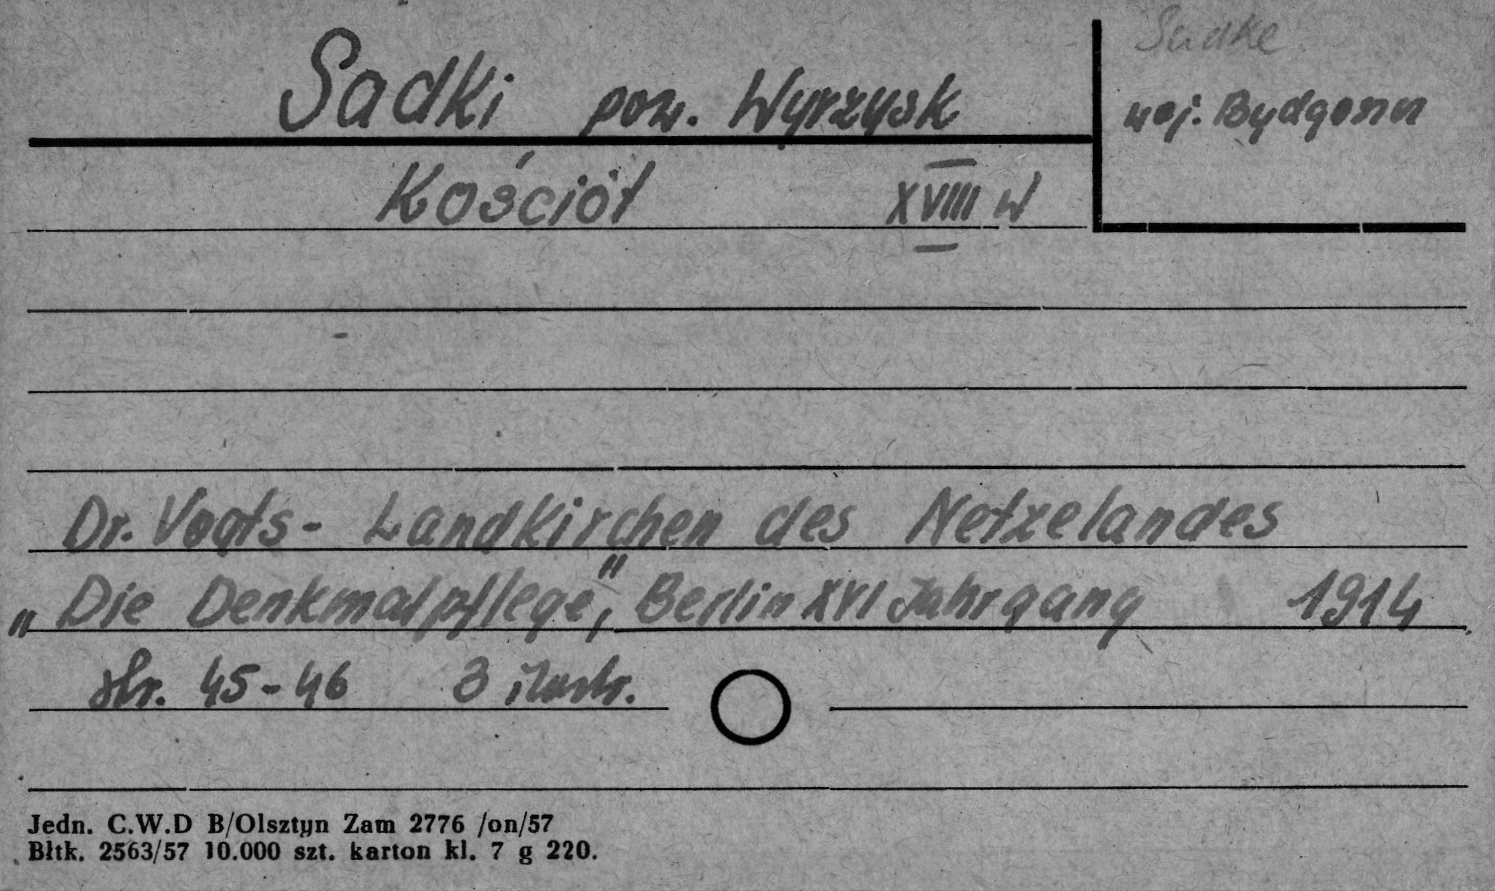 Sadke
Sadki pow. Wyrzysk
woj. Bydgoszcz
Kościół XVIII w
Dr. Vogts - Landkirchen des Netzelandes
„Die Denkmalpflege", Berlin XVI Jahrgang 1914
str. 45-46 3 ilustr.
Jedn. C.W.D B/Olsztyn Zam 2776 /on/57
Błtk. 2563/57 10.000 szt. karton kl. 7 g 220.